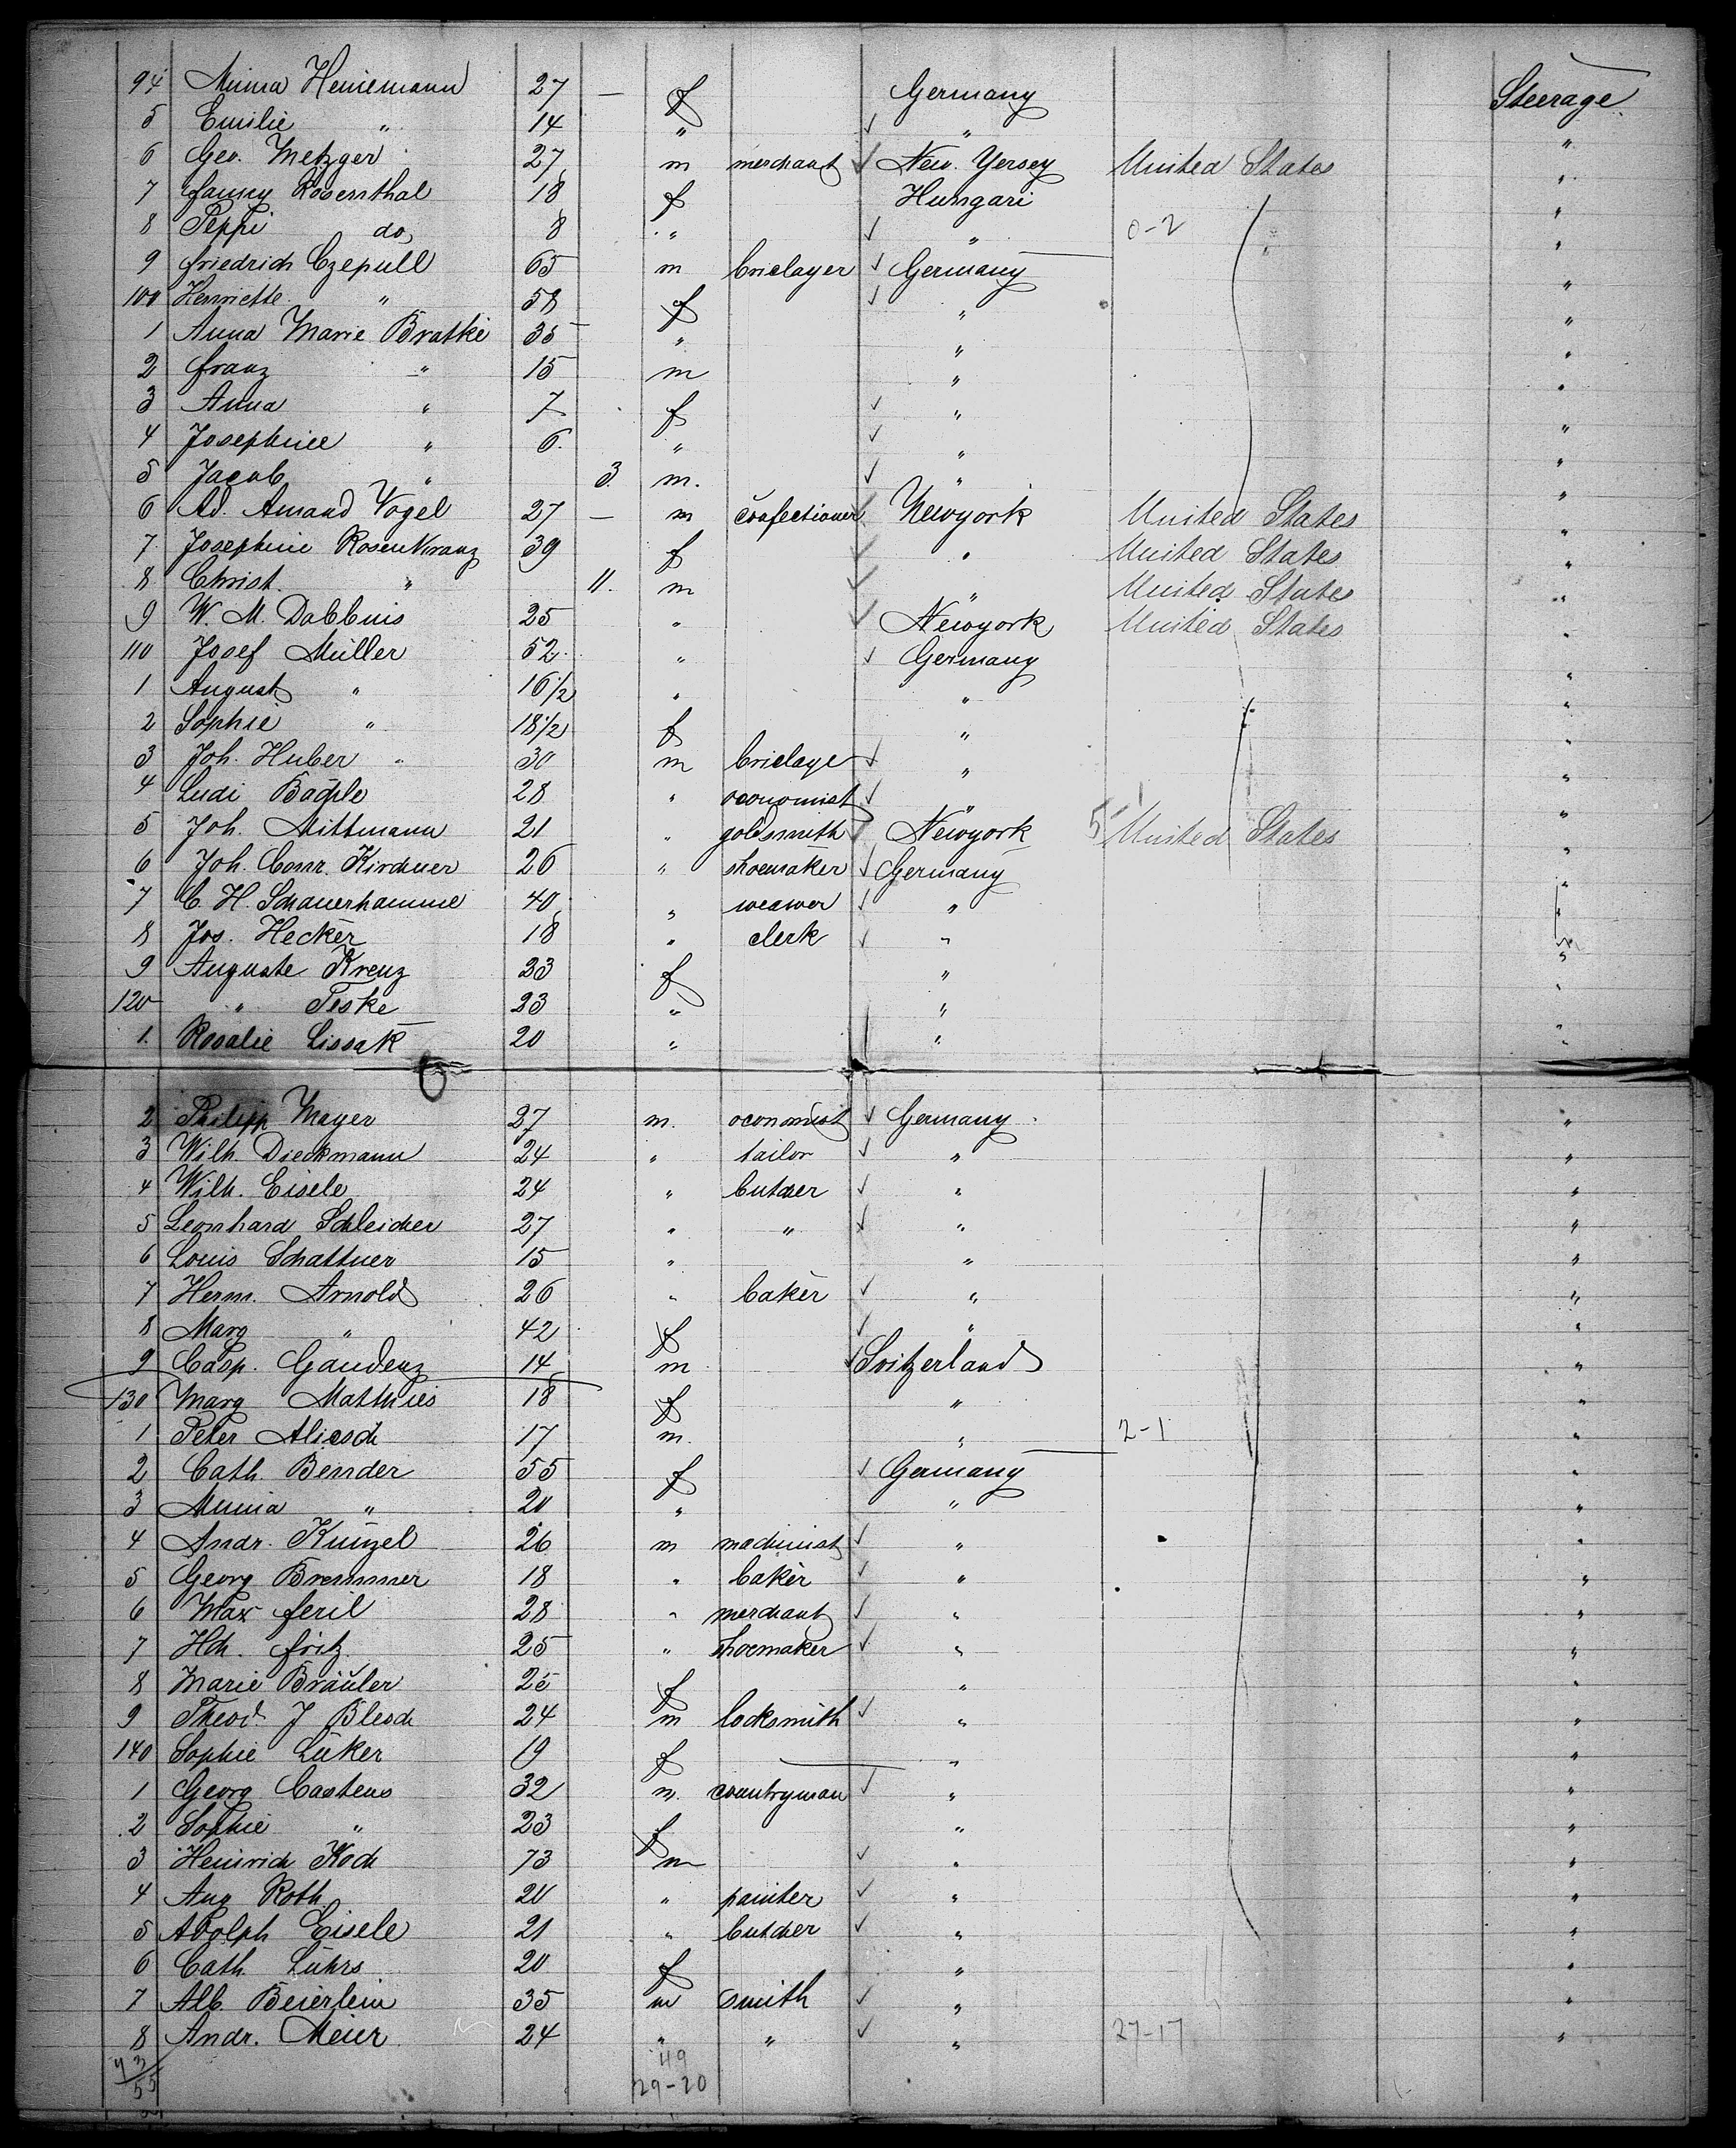 94 Minna Heinemann 27 — f Germany Steerage
5 Emilie " 14 " ✓ " "
6 Geo. Metzger 27 m merchant ✓ New. Yersey United States "
7 fanny Rosenthal 18 f Hungari "
8 Peppi do, 8 " ✓ " 0-2 "
9 friedrich Czepull 65 m briclayer ✓ Germany "
100 Henriette " 58 f ✓ " "
1 Anna Marie Bratke 35 " " "
2 franz " 15 m " "
3 Anna " 7 f ✓ " "
4 Josephine " 6. " ✓ " "
5 Jacob " 3. m. ✓ " "
6 Ad. Amand Vogel 27 — m confectioner ✓ Newyork United States "
7. Josephine Rosenkranz 39 f ✓ " United States "
8 Christ. " 11. m ✓ " United States "
9 W. M. Dabbuis 25 " ✓ Newyork United States "
110 Josef Müller 52 " ✓ Germany "
1 August " 16½ " " "
2 Sophie " 18½ f " "
3 Joh. Huber " 30 m briclaye ✓ " "
4 Ludi Bächle 28 " oconomist ✓ " "
5 Joh. Mittmann 21 " goldsmith ✓ Newyork 5 United States "
6 Joh. Conr. Kirchner 26 " shoemaker ✓ Germany "
7 C. H. Schauerhamme 40 " weawer ✓ " "
8 Jos. Hecker 18 " clerk ✓ " "
9 Auguste Kreuz 23 f " "
120 " Teske 23 " " "
1. Rosalie Lissak 20 " " "
2 Philipp Mayer 27 m. oconomist ✓ Germany "
3 Wilh. Dieckmann 24 " tailor ✓ " "
4 Wilh. Eisele 24 " butcher ✓ " "
5 Leonhard Schleicher 27 " " ✓ " "
6 Louis Schattner 15 " " "
7 Herm. Arnold 26 " baker ✓ " "
8 Marg " 42 f ✓ " "
9 Casp. Gaudenz 14 m ✓ Svitzerland "
130 Marg Matthies 18 f " "
1 Peter Aliesch 17 m. " 2-1 "
2 Cath Bender 55 f ✓ Germany "
3 Minna " 20 " " "
4 Andr. Künzel 26 m machinist ✓ " "
5 Georg Bremmer 18 " baker ✓ " "
6 Max feril 28 " merchant ✓ " "
7 Hch. fritz 25 " shoemaker ✓ " "
8 Marie Bräuler 25 f " "
9 Theod. J Blesch 24 m locksmith ✓ " "
140 Sophie Lüker 19 f " "
1 Georg Castens 32 m. countryman ✓ " "
2 Sophie " 23 f " "
3 Heinrich Koch 73 m ✓ " "
4 Aug Roth 20 " painter ✓ " "
5 Adolph Eisele 21 " butcher ✓ " "
6 Cath. Lührs 20 f " "
7 Alb. Beierlein 35 m smith ✓ " "
8 Andr. Meier 24 " " ✓ " 27-17 "
49
55 29-20